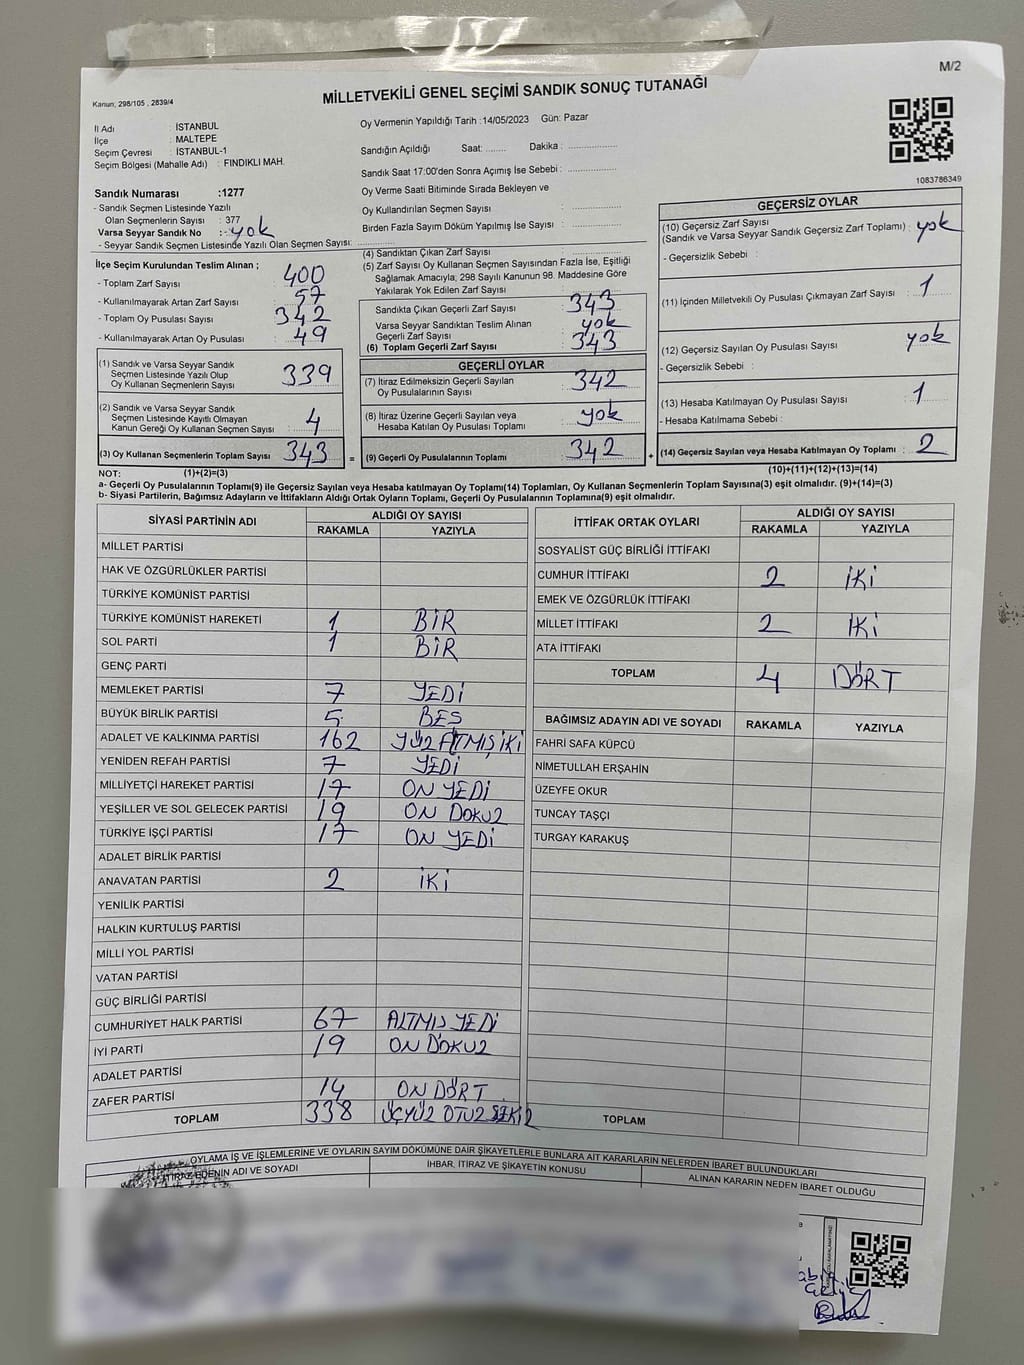 M/2
Kanun, 298/105 , 2839/4
MİLLETVEKİLİ GENEL SEÇİMİ SANDIK SONUÇ TUTANAĞI
İl Adı : İSTANBUL
İlçe : MALTEPE
Seçim Çevresi : İSTANBUL-1
Seçim Bölgesi (Mahalle Adı) : FINDIKLI MAH.
Sandık Numarası :1277
- Sandık Seçmen Listesinde Yazılı
Olan Seçmenlerin Sayısı : 377
Varsa Seyyar Sandık No : yok
- Seyyar Sandık Seçmen Listesinde Yazılı Olan Seçmen Sayısı:
Oy Vermenin Yapıldığı Tarih :14/05/2023 Gün: Pazar
Sandığın Açıldığı Saat: ........ Dakika : ................
Sandık Saat 17:00'den Sonra Açımış İse Sebebi : ................
Oy Verme Saati Bitiminde Sırada Bekleyen ve
Oy Kullandırılan Seçmen Sayısı : ................
Birden Fazla Sayım Döküm Yapılmış İse Sayısı : ................
1083786349
İlçe Seçim Kurulundan Teslim Alınan ;
- Toplam Zarf Sayısı : 400
- Kullanılmayarak Artan Zarf Sayısı : 57
- Toplam Oy Pusulası Sayısı : 342
- Kullanılmayarak Artan Oy Pusulası : 49
(1) Sandık ve Varsa Seyyar Sandık
Seçmen Listesinde Yazılı Olup
Oy Kullanan Seçmenlerin Sayısı : 339
(2) Sandık ve Varsa Seyyar Sandık
Seçmen Listesinde Kayıtlı Olmayan
Kanun Gereği Oy Kullanan Seçmen Sayısı : 4
(3) Oy Kullanan Seçmenlerin Toplam Sayısı : 343
(4) Sandıktan Çıkan Zarf Sayısı :
(5) Zarf Sayısı Oy Kullanan Seçmen Sayısından Fazla İse, Eşitliği
Sağlamak Amacıyla; 298 Sayılı Kanunun 98. Maddesine Göre
Yakılarak Yok Edilen Zarf Sayısı :
Sandıkta Çıkan Geçerli Zarf Sayısı : 343
Varsa Seyyar Sandıktan Teslim Alınan
Geçerli Zarf Sayısı : yok
(6) Toplam Geçerli Zarf Sayısı : 343
GEÇERLİ OYLAR
(7) İtiraz Edilmeksizin Geçerli Sayılan
Oy Pusulalarının Sayısı : 342
(8) İtiraz Üzerine Geçerli Sayılan veya
Hesaba Katılan Oy Pusulası Toplamı : yok
= (9) Geçerli Oy Pusulalarının Toplamı : 342
GEÇERSİZ OYLAR
(10) Geçersiz Zarf Sayısı
(Sandık ve Varsa Seyyar Sandık Geçersiz Zarf Toplamı) : yok
- Geçersizlik Sebebi :
(11) İçinden Milletvekili Oy Pusulası Çıkmayan Zarf Sayısı : 1
(12) Geçersiz Sayılan Oy Pusulası Sayısı : yok
- Geçersizlik Sebebi :
(13) Hesaba Katılmayan Oy Pusulası Sayısı : 1
- Hesaba Katılmama Sebebi :
+ (14) Geçersiz Sayılan veya Hesaba Katılmayan Oy Toplamı : 2
NOT: (1)+(2)=(3) (10)+(11)+(12)+(13)=(14)
a- Geçerli Oy Pusulalarının Toplamı(9) ile Geçersiz Sayılan veya Hesaba katılmayan Oy Toplamı(14) Toplamları, Oy Kullanan Seçmenlerin Toplam Sayısına(3) eşit olmalıdır. (9)+(14)=(3)
b- Siyasi Partilerin, Bağımsız Adayların ve İttifakların Aldığı Ortak Oyların Toplamı, Geçerli Oy Pusulalarının Toplamına(9) eşit olmalıdır.
SİYASİ PARTİNİN ADI ALDIĞI OY SAYISI
RAKAMLA YAZIYLA
MİLLET PARTİSİ
HAK VE ÖZGÜRLÜKLER PARTİSİ
TÜRKİYE KOMÜNİST PARTİSİ
TÜRKİYE KOMÜNİST HAREKETİ 1 BİR
SOL PARTİ 1 BİR
GENÇ PARTİ
MEMLEKET PARTİSİ 7 YEDİ
BÜYÜK BİRLİK PARTİSİ 5 BEŞ
ADALET VE KALKINMA PARTİSİ 162 YÜZ ATMIŞ İKİ
YENİDEN REFAH PARTİSİ 7 YEDİ
MİLLİYETÇİ HAREKET PARTİSİ 17 ON YEDİ
YEŞİLLER VE SOL GELECEK PARTİSİ 19 ON DOKUZ
TÜRKİYE İŞÇİ PARTİSİ 17 ON YEDİ
ADALET BİRLİK PARTİSİ
ANAVATAN PARTİSİ 2 İKİ
YENİLİK PARTİSİ
HALKIN KURTULUŞ PARTİSİ
MİLLİ YOL PARTİSİ
VATAN PARTİSİ
GÜÇ BİRLİĞİ PARTİSİ
CUMHURİYET HALK PARTİSİ 67 ALTMIŞ YEDİ
İYİ PARTİ 19 ON DOKUZ
ADALET PARTİSİ
ZAFER PARTİSİ 14 ON DÖRT
TOPLAM 338 ÜÇYÜZ OTUZ SEKİZ
İTTİFAK ORTAK OYLARI ALDIĞI OY SAYISI
RAKAMLA YAZIYLA
SOSYALİST GÜÇ BİRLİĞİ İTTİFAKI
CUMHUR İTTİFAKI 2 İKİ
EMEK VE ÖZGÜRLÜK İTTİFAKI
MİLLET İTTİFAKI 2 İKİ
ATA İTTİFAKI
TOPLAM 4 DÖRT
BAĞIMSIZ ADAYIN ADI VE SOYADI RAKAMLA YAZIYLA
FAHRİ SAFA KÜPCÜ
NİMETULLAH ERŞAHİN
ÜZEYFE OKUR
TUNCAY TAŞÇI
TURGAY KARAKUŞ
TOPLAM
OYLAMA İŞ VE İŞLEMLERİNE VE OYLARIN SAYIM DÖKÜMÜNE DAİR ŞİKAYETLERLE BUNLARA AİT KARARLARIN NELERDEN İBARET BULUNDUKLARI
İTİRAZ EDENİN ADI VE SOYADI İHBAR, İTİRAZ VE ŞİKAYETİN KONUSU ALINAN KARARIN NEDEN İBARET OLDUĞU